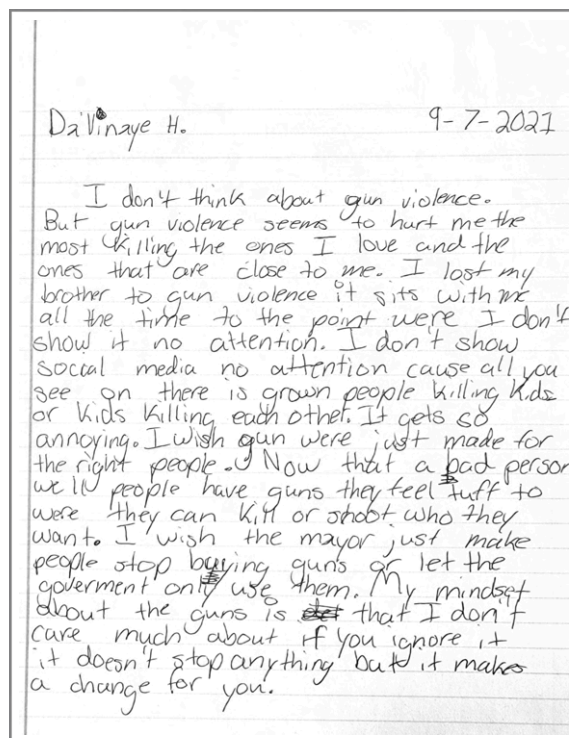 Da'Vinaye H. 9-7-2021
I don't think about gun violence.
But gun violence seems to hurt me the
most killing the ones I love and the
ones that are close to me. I lost my
brother to gun violence it sits with me
all the time to the point were I don't
show it no attention. I don't show
social media no attention cause all you
see on there is grown people killing kids
or kids killing each other. It gets so
annoying. I wish gun were just made for
the right people. Now that a bad person
well people have guns they feel tuff to
were they can kill or shoot who they
want. I wish the mayor just make
people stop buying guns or let the
goverment only use them. My mindset
about the guns is that I don't
care much about if you ignore it
it doesn't stop anything but it makes
a change for you.